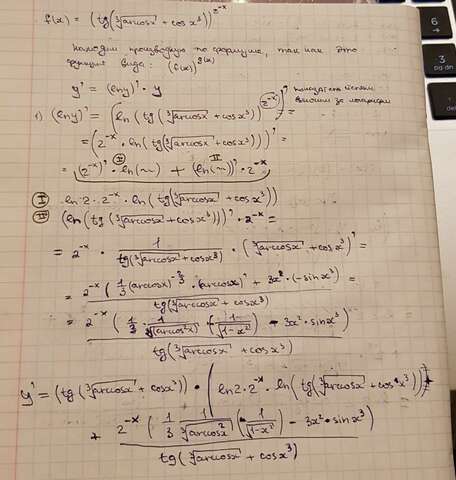 f(x) = (tg(∛arccosx + cos x³))^{2^{-x}}
находим производную по формуле, так как это
функция вида: (f(x))^{g(x)}
y' = (ln y)' · y
1) (ln y)' = (ln (tg(∛arccosx + cosx³))^{2^{-x}})' =
показатель степени
выносим за логарифм
= (2^{-x} · ln(tg(∛arccosx + cosx³)))' =
= (2^{-x})' · ln(~) + (ln(~))' · 2^{-x}
I II
I ln2 · 2^{-x} · ln(tg(∛arccosx + cosx³))
II (ln(tg(∛arccosx + cosx³)))' · 2^{-x} =
= 2^{-x} · 1/tg(∛arccosx + cosx³) · (∛arccosx + cosx³)' =
= 2^{-x} (1/3 (arccosx)^{-2/3} · (arccosx)' + 3x² · (-sinx³)) / tg(∛arccosx + cosx³) =
= 2^{-x} (1/3 · 1/∛(arccos²x) · (1/√(1-x²)) - 3x² · sinx³) / tg(∛arccosx + cosx³)
y' = (tg(∛arccosx + cosx³)) · (ln2 · 2^{-x} · ln(tg(∛arccosx + cosx³)) +
+ 2^{-x} (1/3 1/∛(arccosx²) (1/√(1-x²)) - 3x² · sinx³) / tg(∛arccosx + cosx³)
3
pg dn
6